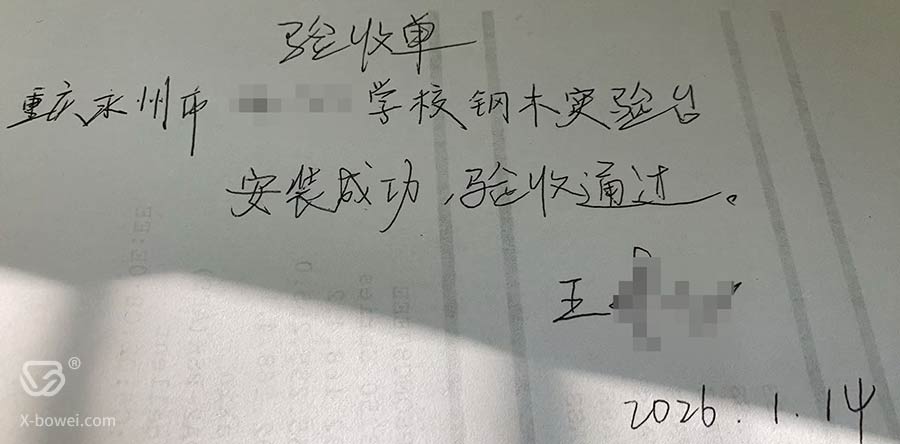 验收单
重庆永州市 学校钢木实验台
安装成功,验收通过。
王
2026.1.14
®
X-bowei.com